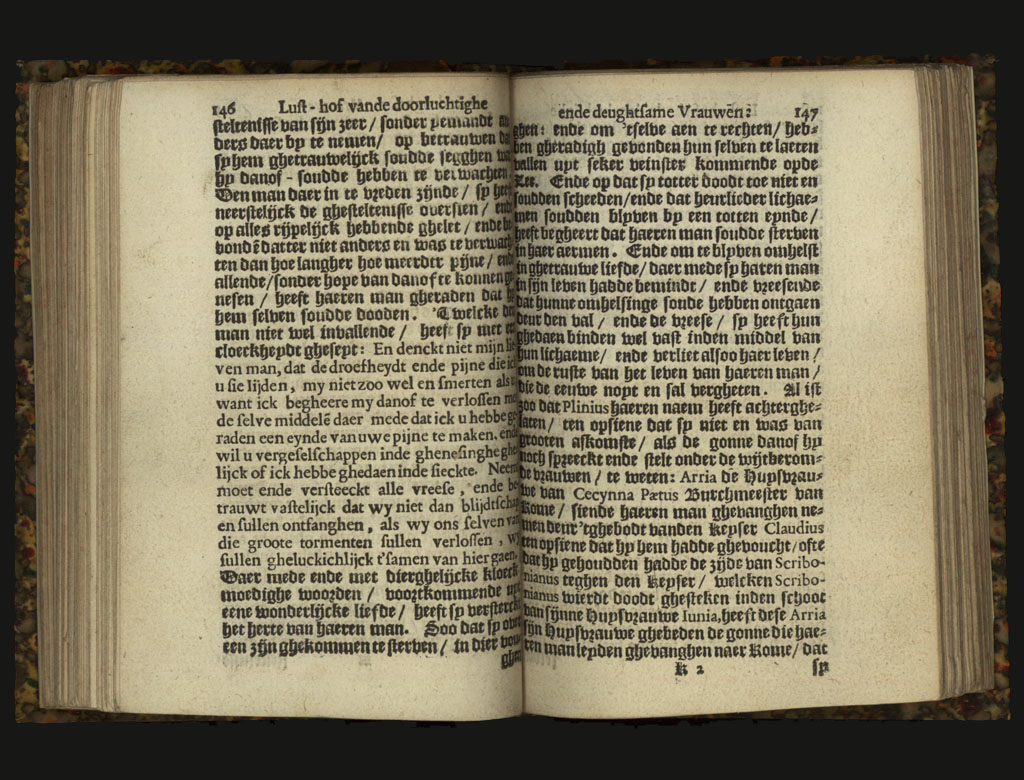 146 Lust-hof vande doorluchtighe
steltenisse van sijn zeer / sonder yemandt
ders daer by te nemen / op betrauwen
sy hem ghetrauwelijck soudde segghen
hy danof-soudde hebben te verwachten
Den man daer in te vreden zijnde / sy
neerstelijck de ghesteltenisse oversien /
op alles rijpelijck hebbende ghelet / ende
vondē datter niet anders en was te
ten dan hoe langher hoe meerder pijne /
allende / sonder hope van danof te konnen
nesen / heeft haeren man gheraden dat
hem selven soudde dooden. 'Twelcke
man niet wel invallende / heeft sy met
cloeckheydt gheseyt: En denckt niet mijn
ven man, dat de droefheydt ende pijne die
u sie lijden, my niet zoo wel en smerten
want ick begheere my danof te verlossen
de selve middelē daer mede dat ick u hebbe
raden een eynde van uwe pijne te maken.
wil u vergeselschappen inde ghenesinghe
lijck of ick hebbe ghedaen inde sieckte. Neemt
moet ende versteeckt alle vreese, ende
trauwt vastelijck dat wy niet dan
en sullen ontfanghen, als wy ons selven
die groote tormenten sullen verlossen,
sullen gheluckichlijck t'samen van hier gaen.
Daer mede ende met dierghelijcke
moedighe woorden / voortkommende
eene wonderlijcke liefde / heeft sy
het herte van haeren man. Soo dat sy
een zijn ghekommen te sterven / in dier
ende deughtsame Vrauwen: 147
ghen: ende om 'tselve aen te rechten / heb-
ben gheradigh gevonden hun selven te laeten
vallen uyt seker veinster kommende opde
Zee. Ende op dat sy totter doodt toe niet en
soudden scheeden / ende dat heurlieder lichae-
men soudden blyven by een totten eynde /
heeft begheert dat haeren man soudde sterven
in haer aermen. Ende om te blyven omhelst
in ghetrauwe liefde / daer mede sy haren man
in sijn leven hadde bemindt / ende vreesende
dat hunne omhelsinge soude hebben ontgaen
deur den val / ende de vreese / sy heeft hun
ghedaen binden wel vast inden middel van
hun lichaeme / ende verliet alsoo haer leven /
om de ruste van het leven van haeren man /
die de eeuwe noyt en sal vergheten. Al ist
zoo dat Plinius haeren naem heeft achterghe-
laten / ten opsiene dat sy niet en was van
grooten afkomste / als de gonne danof hy
noch spreeckt ende stelt onder de wijtberom-
de vrauwen / te weten: Arria de Huysvrau-
we van Cecynna Pætus Burchmeester van
Rome / siende haeren man ghevanghen ne-
men deur 'tghebodt vanden Keyser Claudius
ten opsiene dat hy hem hadde ghevoucht / ofte
dat hy gehoudden hadde de zijde van Scribo-
nianus teghen den Keyser / welcken Scribo-
nianus wierdt doodt ghesteken inden schoot
van sijnne Huysvrauwe Iunia, heeft dese Arria
sijn Huysvrauwe ghebeden de gonne die hae-
ren man leyden ghevanghen naer Rome / dat
K 2 sy